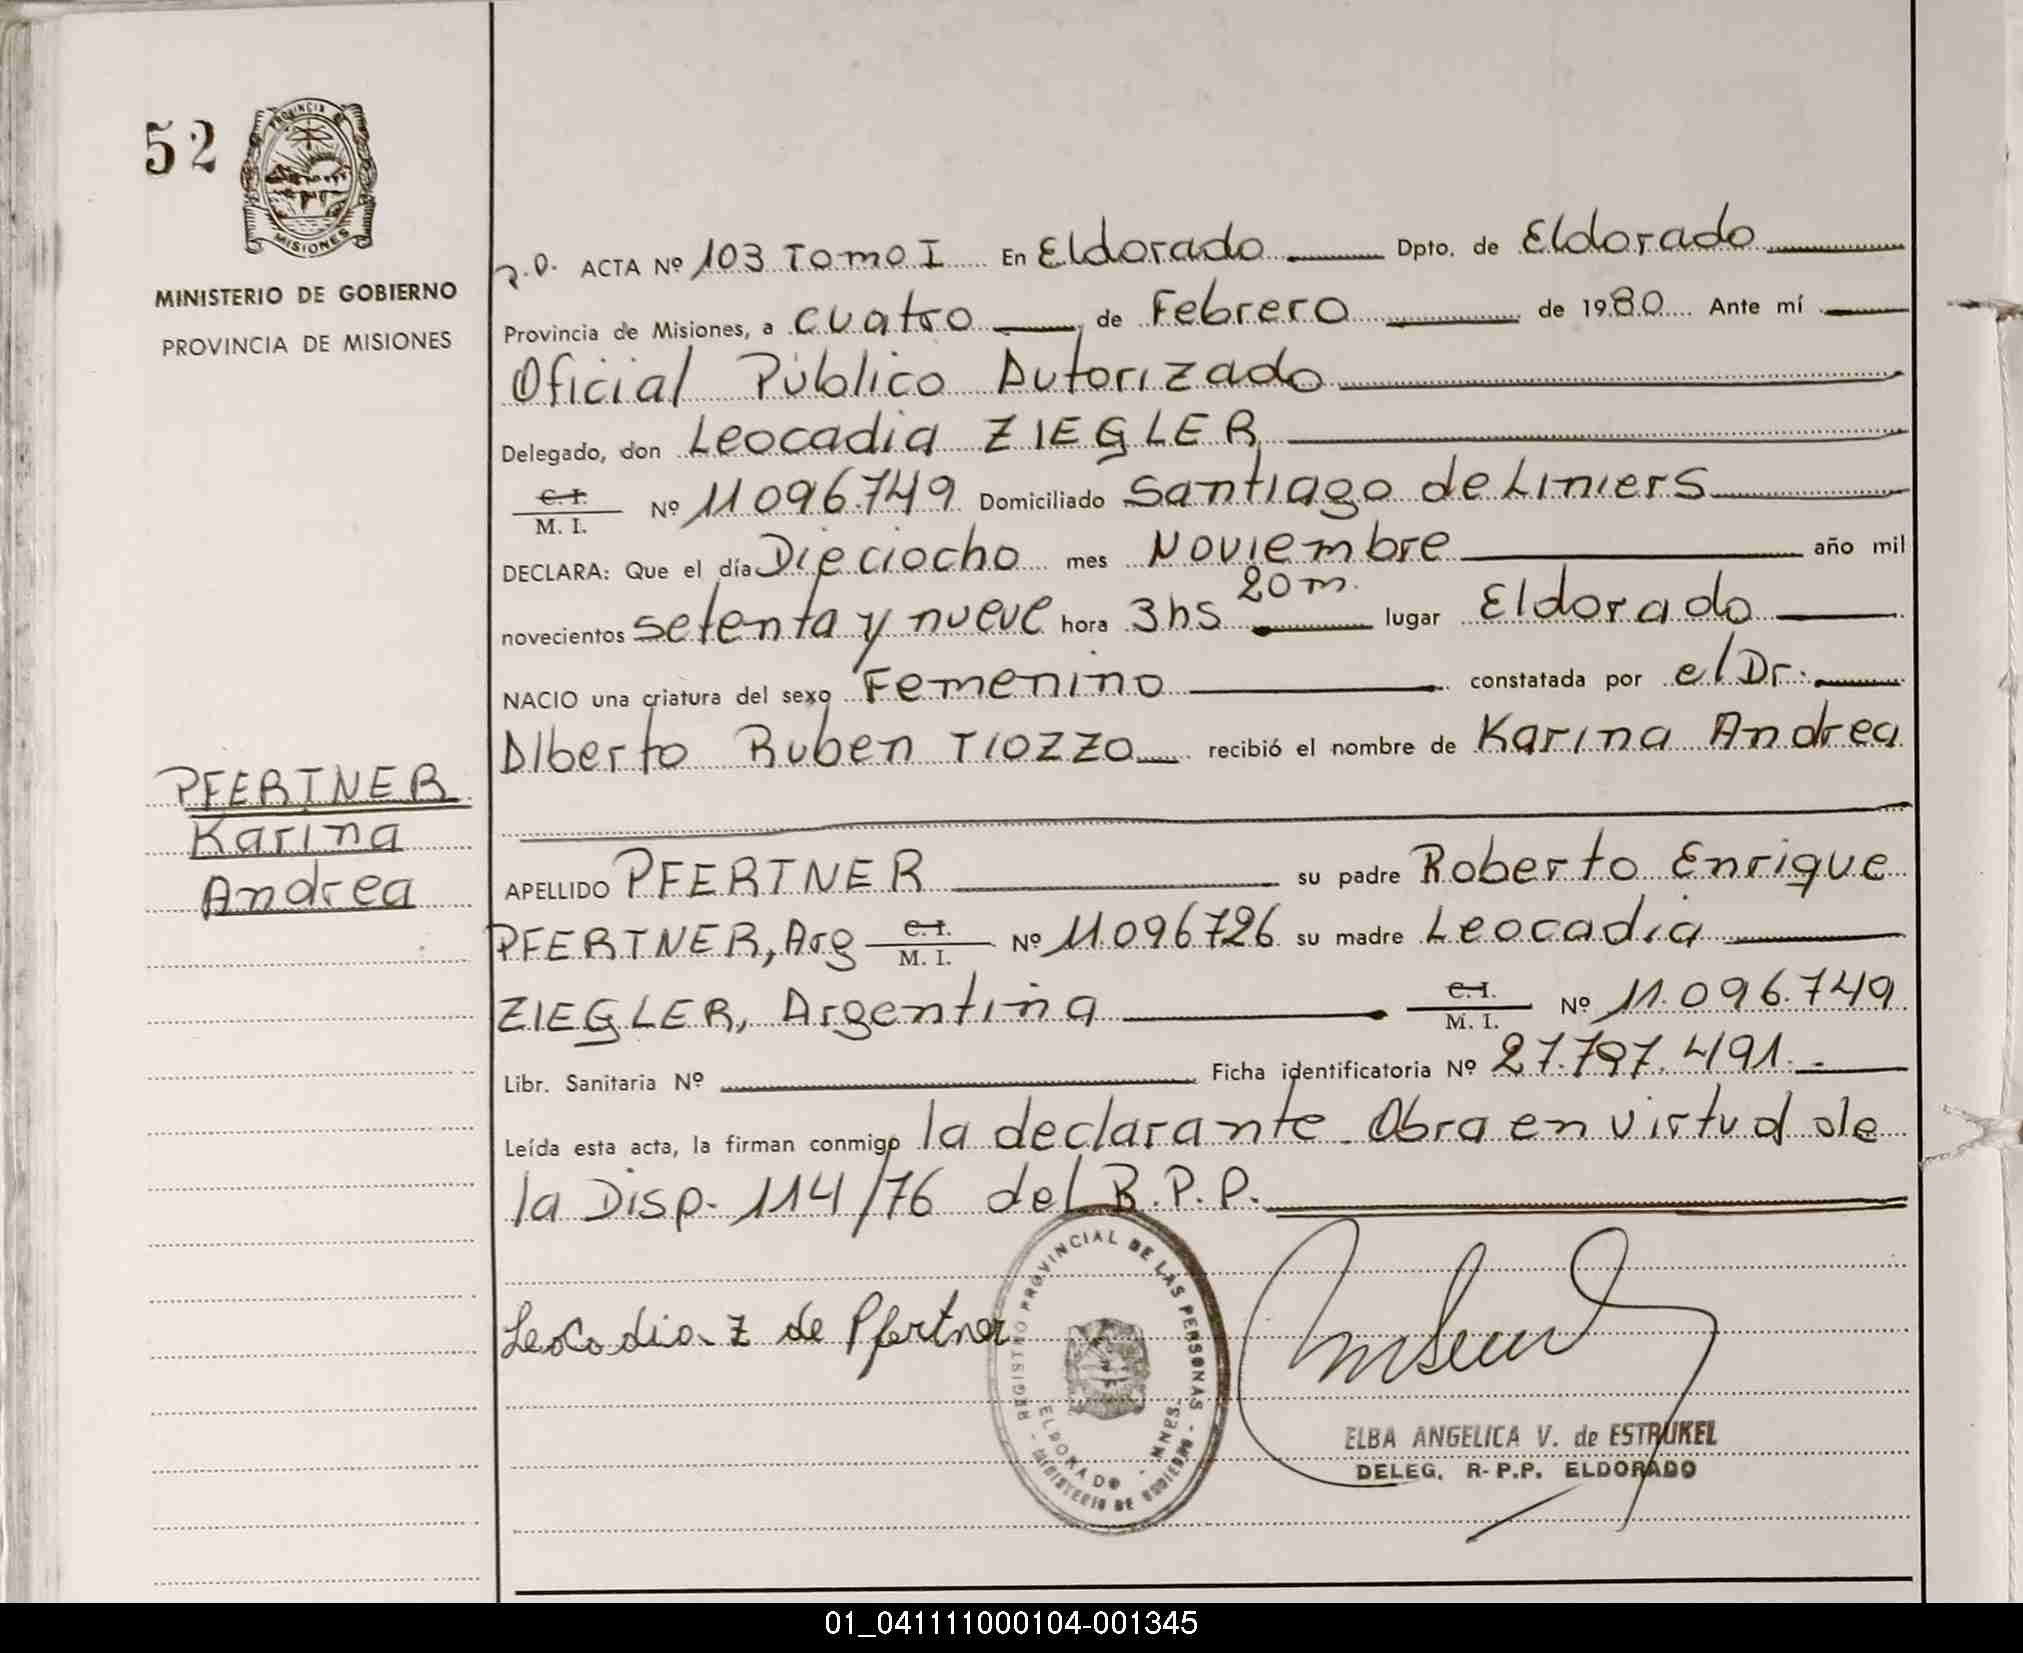 52
PROVINCIA DE
MISIONES
MINISTERIO DE GOBIERNO
PROVINCIA DE MISIONES
ACTA Nº 103 Tomo I En Eldorado Dpto. de Eldorado
Provincia de Misiones, a cuatro de Febrero de 1980 Ante mí
Oficial Público Autorizado
Delegado, don Leocadia ZIEGLER
C. I.
M. I. Nº 11 096.749 Domiciliado Santiago de Liniers
DECLARA: Que el día Dieciocho mes Noviembre año mil
novecientos setenta y nueve hora 3 hs 20 m. lugar Eldorado
NACIO una criatura del sexo Femenino constatada por el Dr.
Alberto Ruben TIOZZO recibió el nombre de Karina Andrea
PFERTNER
Karina
Andrea
APELLIDO PFERTNER su padre Roberto Enrique
PFERTNER, Arg C. I. M. I. Nº 11.096726 su madre Leocadia
ZIEGLER, Argentina C. I. M. I. Nº 11.096.749
Libr. Sanitaria Nº Ficha identificatoria Nº 27.797.491.-
Leída esta acta, la firman conmigo la declarante. Obra en virtud de
la Disp. 114/76 del R.P.P.
Leocadia Z de Pfertner
REGISTRO PROVINCIAL DE LAS PERSONAS - MINISTERIO DE GOBIERNO -
ELDORADO - MNES.
ELBA ANGELICA V. de ESTRUKEL
DELEG. R-P.P. ELDORADO
01_041111000104-001345